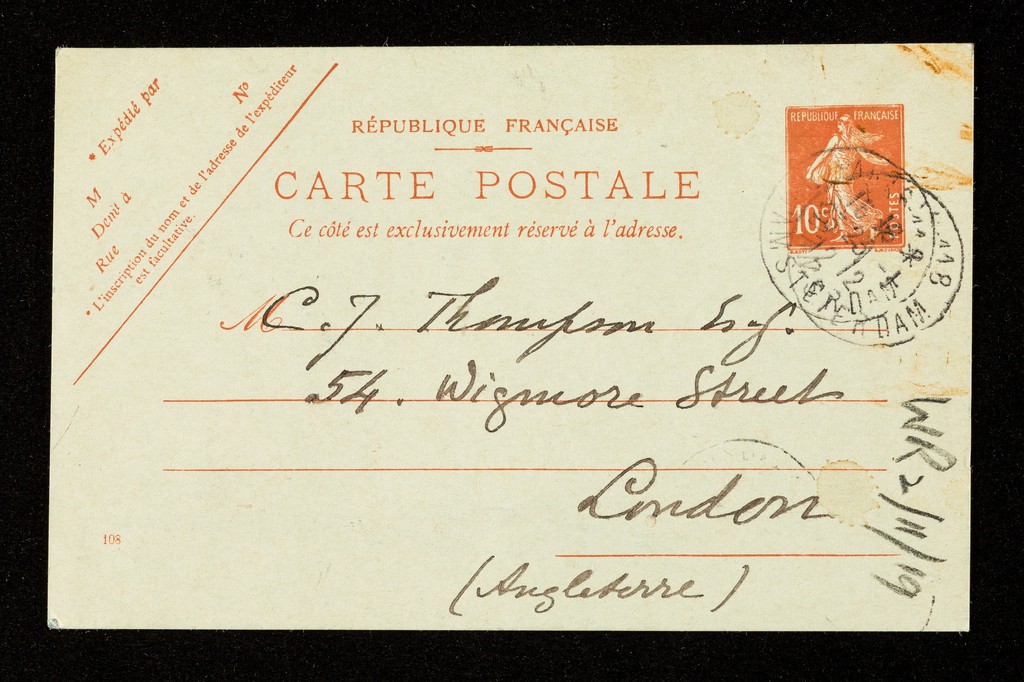 * Expédié par
M
Demt à
Rue
N°
* L'inscription du nom et de l'adresse de l'expéditeur
est facultative.
RÉPUBLIQUE FRANÇAISE
CARTE POSTALE
Ce côté est exclusivement réservé à l'adresse.
RÉPUBLIQUE FRANÇAISE
10c
POSTES
AMSTERDAM
M C. J. Thompson Esq.
54. Wigmore Street
London
(Angleterre)
WR 2/11/19
108